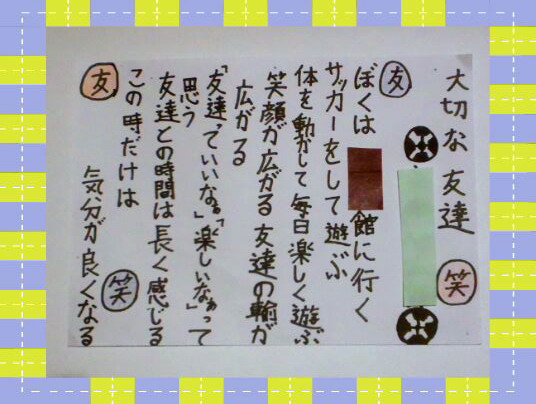 大切な友達
笑
友
ぼくは
館に行く
サッカーをして遊ぶ
体を動かして毎日楽しく遊ぶ
笑顔が広がる友達の輪が
広がる
「友達っていいなぁ」「楽しいなぁ」って
思う
友達との時間は長く感じる
この時だけは
気分が良くなる
友
笑